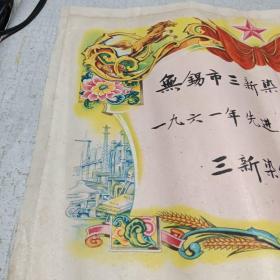 無锡市三新染
一九六一年先进
三新染